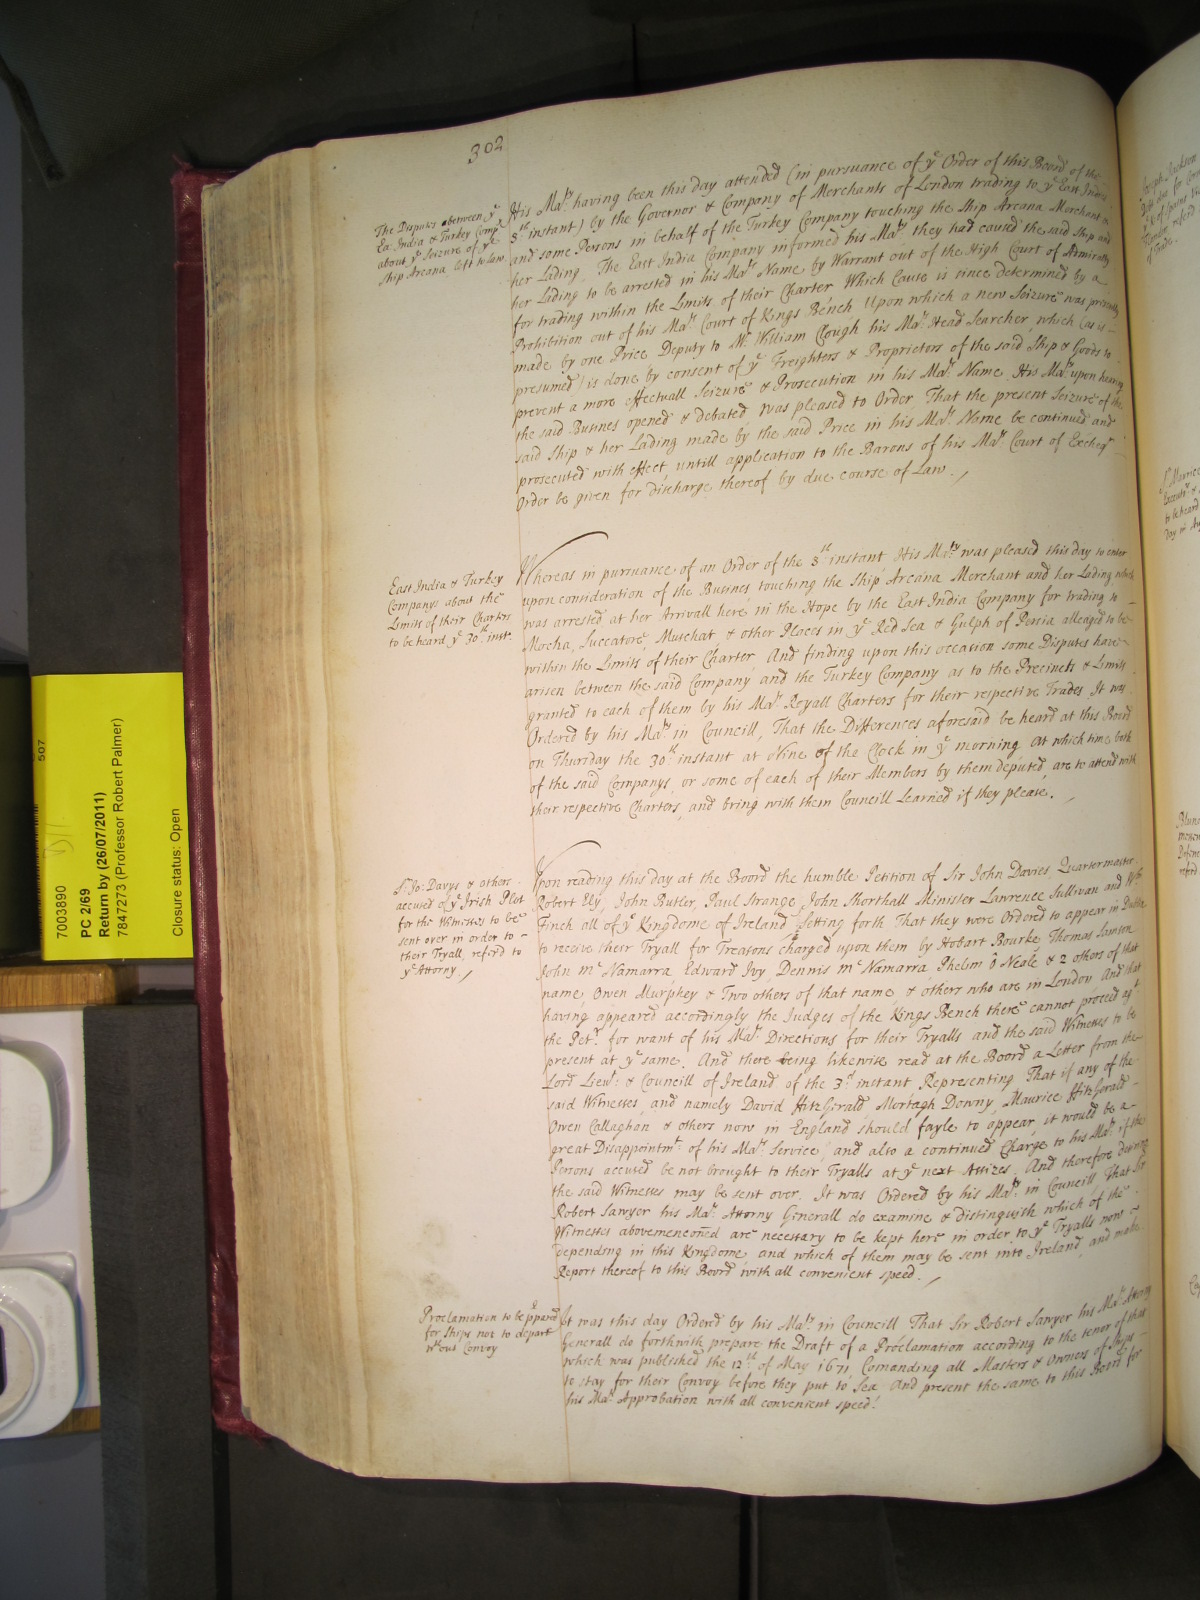 302
The Disputes between yᵉ
Ea: India & Turkey Compᵃ
about yᵉ Seizure of yᵉ
Ship Arcana left to law.
His Maᵗʸ having been this day attended (in pursuance of yᵉ Order of this Board of the
8ᵗʰ instant) by the Governor & Company of Merchants of London trading to yᵉ East Indies
and some Persons in behalf of the Turkey Company touching the Ship Arcana Merchant &
her Lading, The East India Company informed his Maᵗʸ they had caused the said Ship and
her Lading to be arrested in his Maᵗˢ Name by Warrant out of the High Court of Admiralty
for trading within the Limits of their Charter Which Cause is since determined by a
Prohibition out of his Maᵗˢ Court of Kings Bench Upon which a new Seizure was presently
made by one Price Deputy to Mʳ William Clough his Maᵗˢ Head Searcher, which (as is
presumed) is done by consent of yᵉ Freighters & Proprietors of the said Ship & Goods to
prevent a more effectuall Seizure & Prosecution in his Maᵗˢ Name. His Maᵗʸ upon hearing
the said Busines opened & debated was pleased to Order That the present Seizure of the
said Ship & her Lading made by the said Price in his Maᵗˢ Name be continued and
prosecuted with effect, untill application to the Barons of his Maᵗˢ Court of Excheqʳ
Order be given for discharge thereof by due course of Law.
East India & Turkey
Companys about the
Limits of their Charters
to be heard yᵉ 30ᵗʰ inst.
Whereas in pursuance of an Order of the 8ᵗʰ instant His Maᵗʸ was pleased this day to enter
upon consideration of the Busines touching the Ship Arcana Merchant and her Lading which
was arrested at her Arrivall here in the Hope by the East India Company for trading to
Mocha, Succatore, Muschat & other Places in yᵉ Red Sea & Gulph of Persia alleaged to be
within the Limits of their Charter, And finding upon this occasion some Disputes have
arisen between the said Company and the Turkey Company as to the Precincts & Limits
granted to each of them by his Maᵗˢ Royall Charters for their respective Trades It was
Ordered by his Maᵗʸ in Councill, That the Differences aforesaid be heard at this Board
on Thursday the 30ᵗʰ instant at Nine of the Clock in yᵉ morning At which time both
of the said Companys, or some of each of their Members by them deputed, are to attend with
their respective Charters, and bring with them Councill Learned if they please.
Sʳ Jo: Davys & others
accused of yᵉ Irish Plot
for the Witnesses to be
sent over in order to
their Tryall, referd to
yᵉ Attorny
Upon reading this day at the Board the humble Petition of Sir John Davies, Quartermaster
Robert Ely, John Butler, Paul Strange, John Shorthall Minister Lawrence Sullivan and Wᵐ
Finch all of yᵉ Kingdome of Ireland Setting forth That they were Ordered to appear in Dublin
to receive their Tryall for Treasons charged upon them by Hobart Bourke, Thomas Samson
John mᶜ Namarra, Edward Ivy Dennis mᶜ Namarra, Phelim ô Neale & 2 others of that
name, Owen Murphey & Two others of that name, & others who are in London And that
having appeared accordingly the Judges of the Kings Bench there cannot proceed agᵗ
the Petʳˢ for want of his Maᵗˢ Directions for their Tryalls and the said Witnesses to be
present at yᵉ same. And there being likewise read at the Board a Letter from the
Lord Lieuᵗ & Councill of Ireland of the 3ᵈ instant Representing That if any of the
said Witnesses, and namely David FitzGerald, Mortagh Downy, Maurice FfitzGerald
Owen Callaghan & others now in England should fayle to appear, it would be a
great Disappointmᵗ of his Maᵗˢ Service, and also a continued Charge to his Maᵗʸ if the
Persons accused be not brought to their Tryalls at yᵉ next Assizes. And therefore desiring
the said Witnesses may be sent over. It was Ordered by his Maᵗʸ in Councill That Sir
Robert Sawyer his Maᵗˢ Attorny Generall do examine & distinguish which of the
Witnesses abovemencoñed are necessary to be kept here in order to yᵉ Tryalls now
depending in this Kingdome and which of them may be sent into Ireland, and make
Report thereof to this Board with all convenient speed.
Proclamation to be ppared
for Ships not to depart
wᵗʰout Convoy
It was this day Ordered by his Maᵗʸ in Councill That Sir Robert Sawyer his Maᵗˢ Attorny
Generall do forthwith prepare the Draft of a Proclamation according to the tenor of that
which was published the 12ᵗʰ of May 1671, Comanding all Masters & Owners of Ships
to stay for their Convoy before they put to Sea And present the same to this Board for
his Maᵗˢ Approbation with all convenient speed.
507
7003890
PC 2/69
Return by (26/07/2011)
7847273 (Professor Robert Palmer)
Closure status: Open